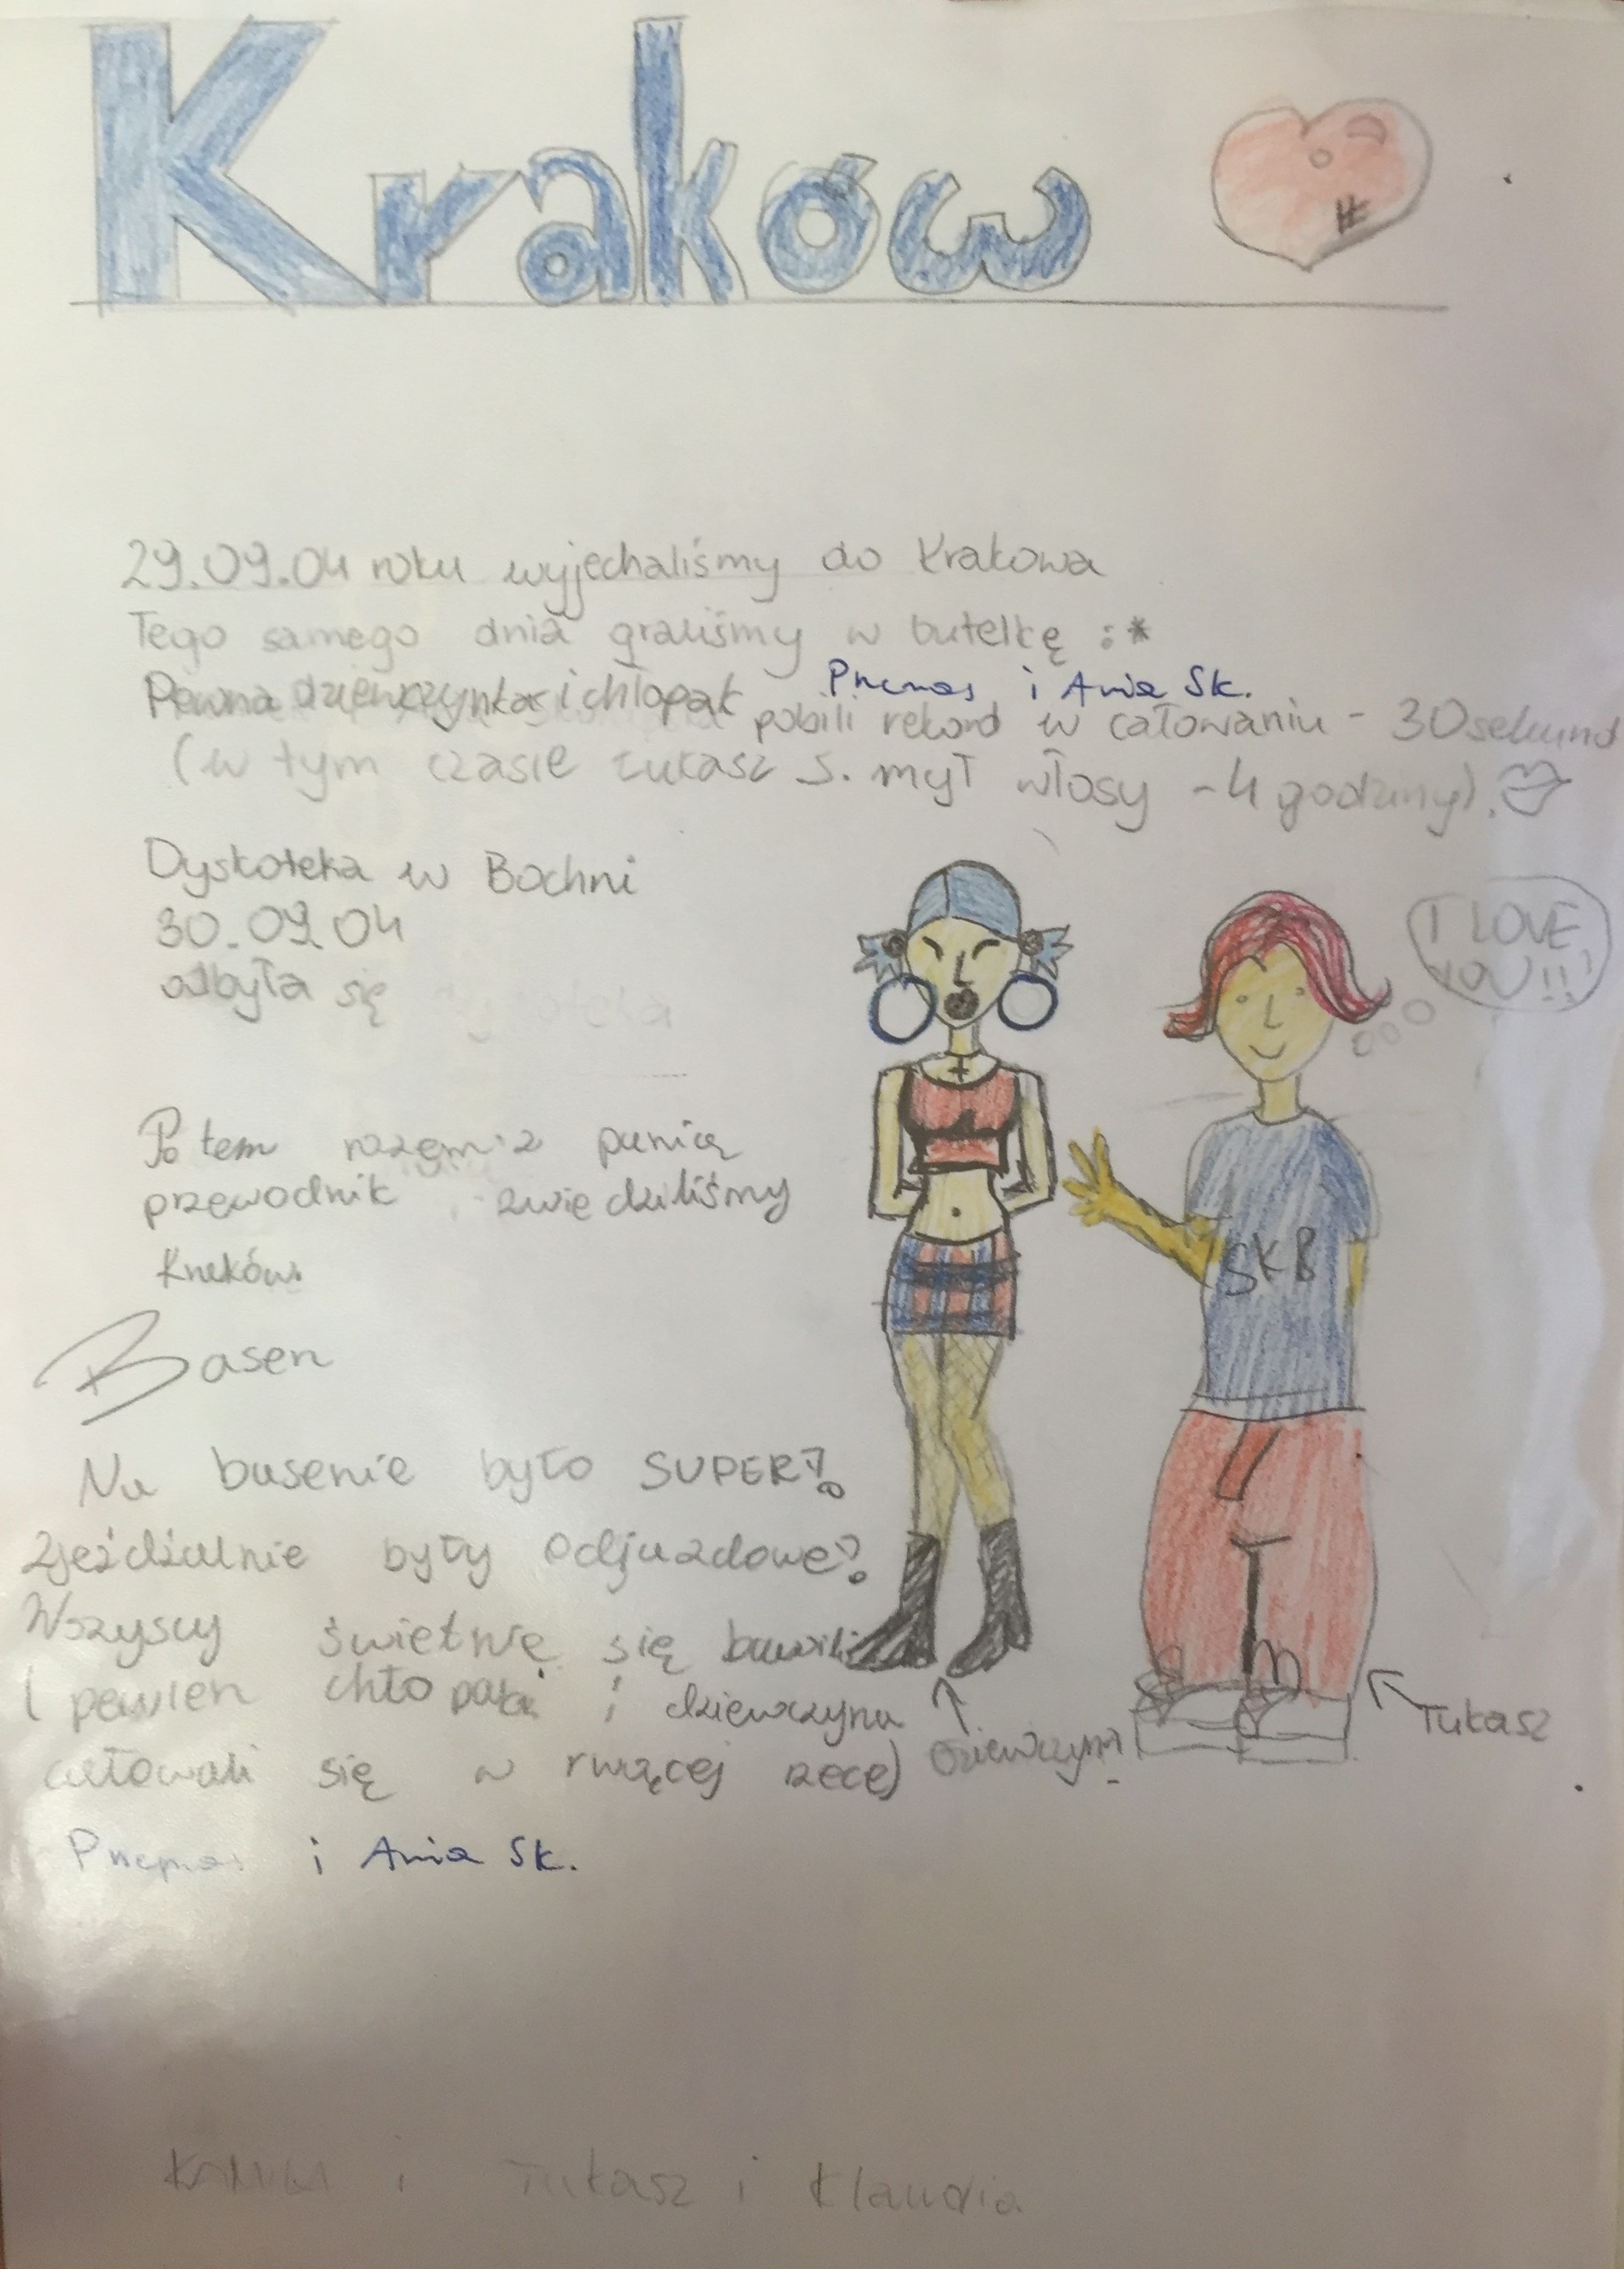 Kraków
29.09.04 roku wyjechaliśmy do Krakowa
Tego samego dnia graliśmy w butelkę :*
Pewna dziewczynka i chłopak i Ania Sk.
pobili rekord w całowaniu - 30 sekund
(w tym czasie Łukasz S. mył włosy - 4 godziny).
Dyskoteka w Bochni
30.09.04
odbyła się dyskoteka
I LOVE
YOU!!!
Potem razem z panią
przewodnik zwiedziliśmy
Kraków.
SKB
Basen
Na basenie było SUPER!
Zjeżdżalnie były odjazdowe!
Wszyscy świetnie się bawili
( pewien chłopak i dziewczyna
całowali się w rwącej rzece)
dziewczyna
Łukasz
i Ania Sk.
i Łukasz i Klaudia